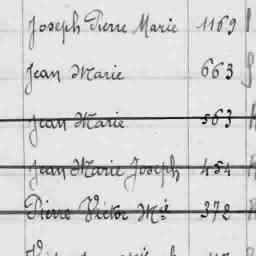 Joseph Pierre Marie 1169
Jean Marie 663
Jean Marie 563
Jean Marie Joseph 454
Pierre Victor Mie 372